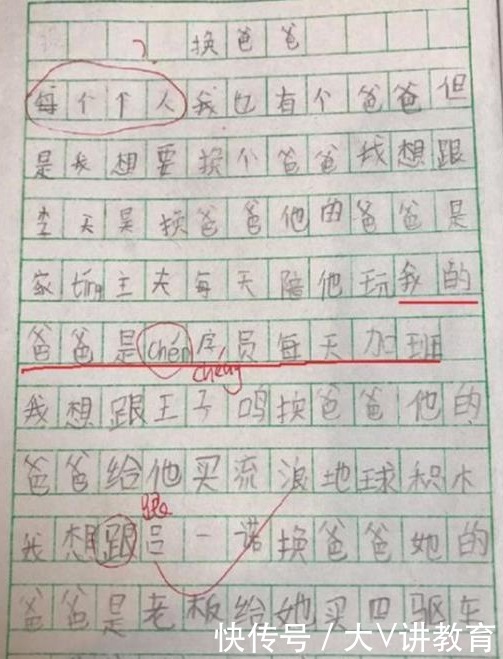 换爸爸
每个个人我也有个爸爸但
是我想要换个爸爸我想跟
李天昊换爸爸他由爸爸是
家tíng主夫每天陪他玩我的
爸爸是chén序员每天加班
chéng
我想跟王子鸣换爸爸他的
爸爸给他买流浪地球积木
跟
我想跟吕一诺换爸爸她的
爸爸是老板给她买四驱车
快传号/大V讲教育